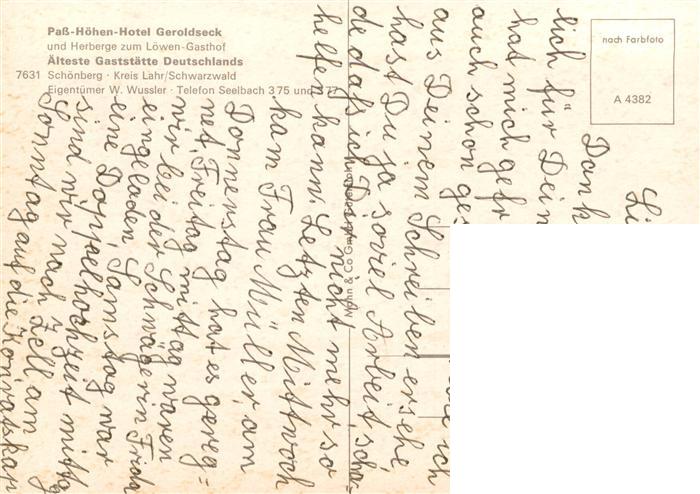 Paß-Höhen-Hotel Geroldseck
und Herberge zum Löwen-Gasthof
Älteste Gaststätte Deutschlands
7631 Schönberg · Kreis Lahr/Schwarzwald
Eigentümer W. Wussler · Telefon Seelbach 3 75 und 3 77
nach Farbfoto
A 4382
Mohn & Co GmbH
Li
Dank
lich für Dein
hat mich gefr
auch schon ges
wie ich
aus Deinem Schreiben ersehe,
hast Du ja soviel Arbeit, scha=
de daß ich Dir nicht mehr so
helfen kann. Letzten Mittwoch
kam Frau Müller, am
Donnerstag hat es gereg=
net, Freitag mittag waren
wir bei der Schwägerin Frida
eingeladen, Samstag war
eine Doppelhochzeit mittag
sind wir nach Zell am
Sonntag auf die Kornatskap